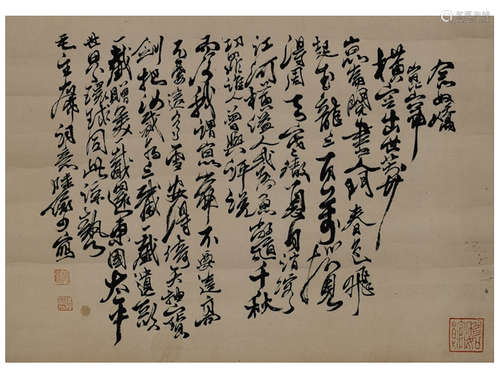 念奴嬌
崑崙
橫空出世莽
崑崙閱盡人間春色飛
起玉龍三百萬攪
得周天寒徹夏日消溶
江河橫溢人或為魚鱉千秋
功罪誰人曾與評說
而今我謂崑崙不要這高
不要這多雪安得倚天抽寶
劍把汝裁為三截一截遺歐
一截贈美一截還東國太平
世界環球同此涼熱
毛主席詞意陸儼少寫